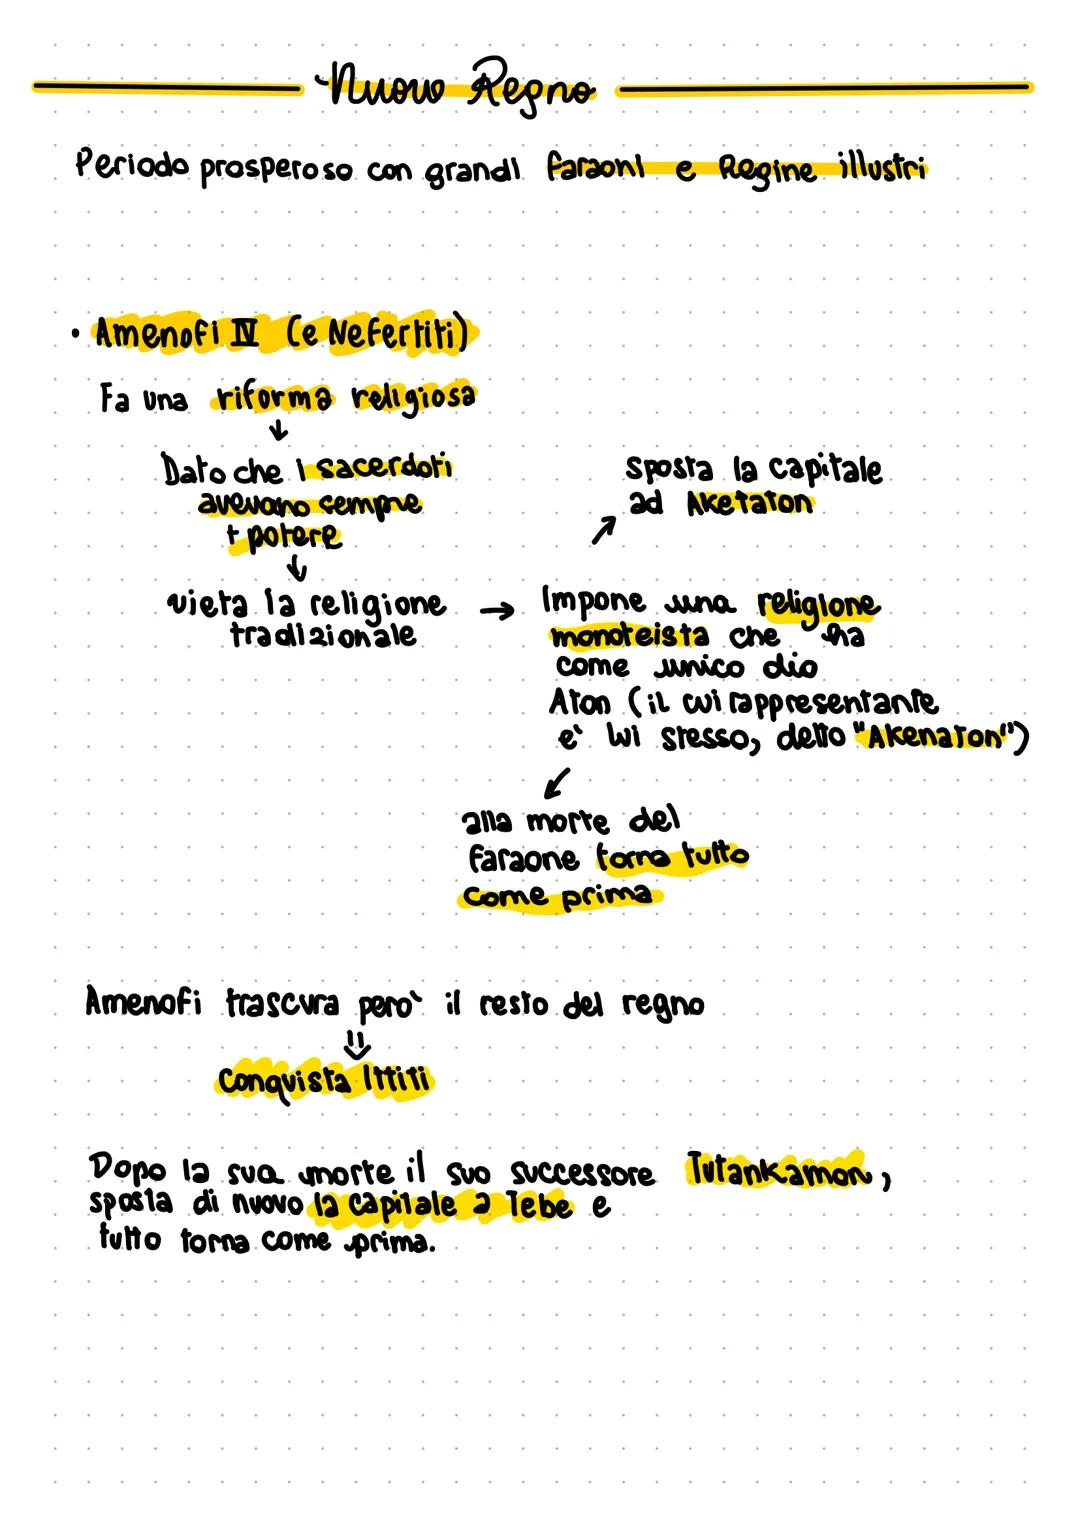 Nuovo Regno
Periodo prosperoso con grandi faraoni e Regine illustri
• Amenofi IV (e Nefertiti)
Fa una riforma religiosa
↓
Dato che i sacerdoti
avevano sempre
+ potere
↓
vieta la religione
tradizionale
→
sposta la capitale
ad Aketaton
↗
Impone una religione
monoteista che ha
come unico dio
Aton (il cui rappresentante
e' lui stesso, detto "Akenaton")
↙
alla morte del
faraone torna tutto
come prima
Amenofi trascura pero` il resto del regno
⇓
Conquista Ittiti
Dopo la sua morte il suo successore Tutankamon,
sposta di nuovo la capitale a Tebe e
tutto torna come prima.